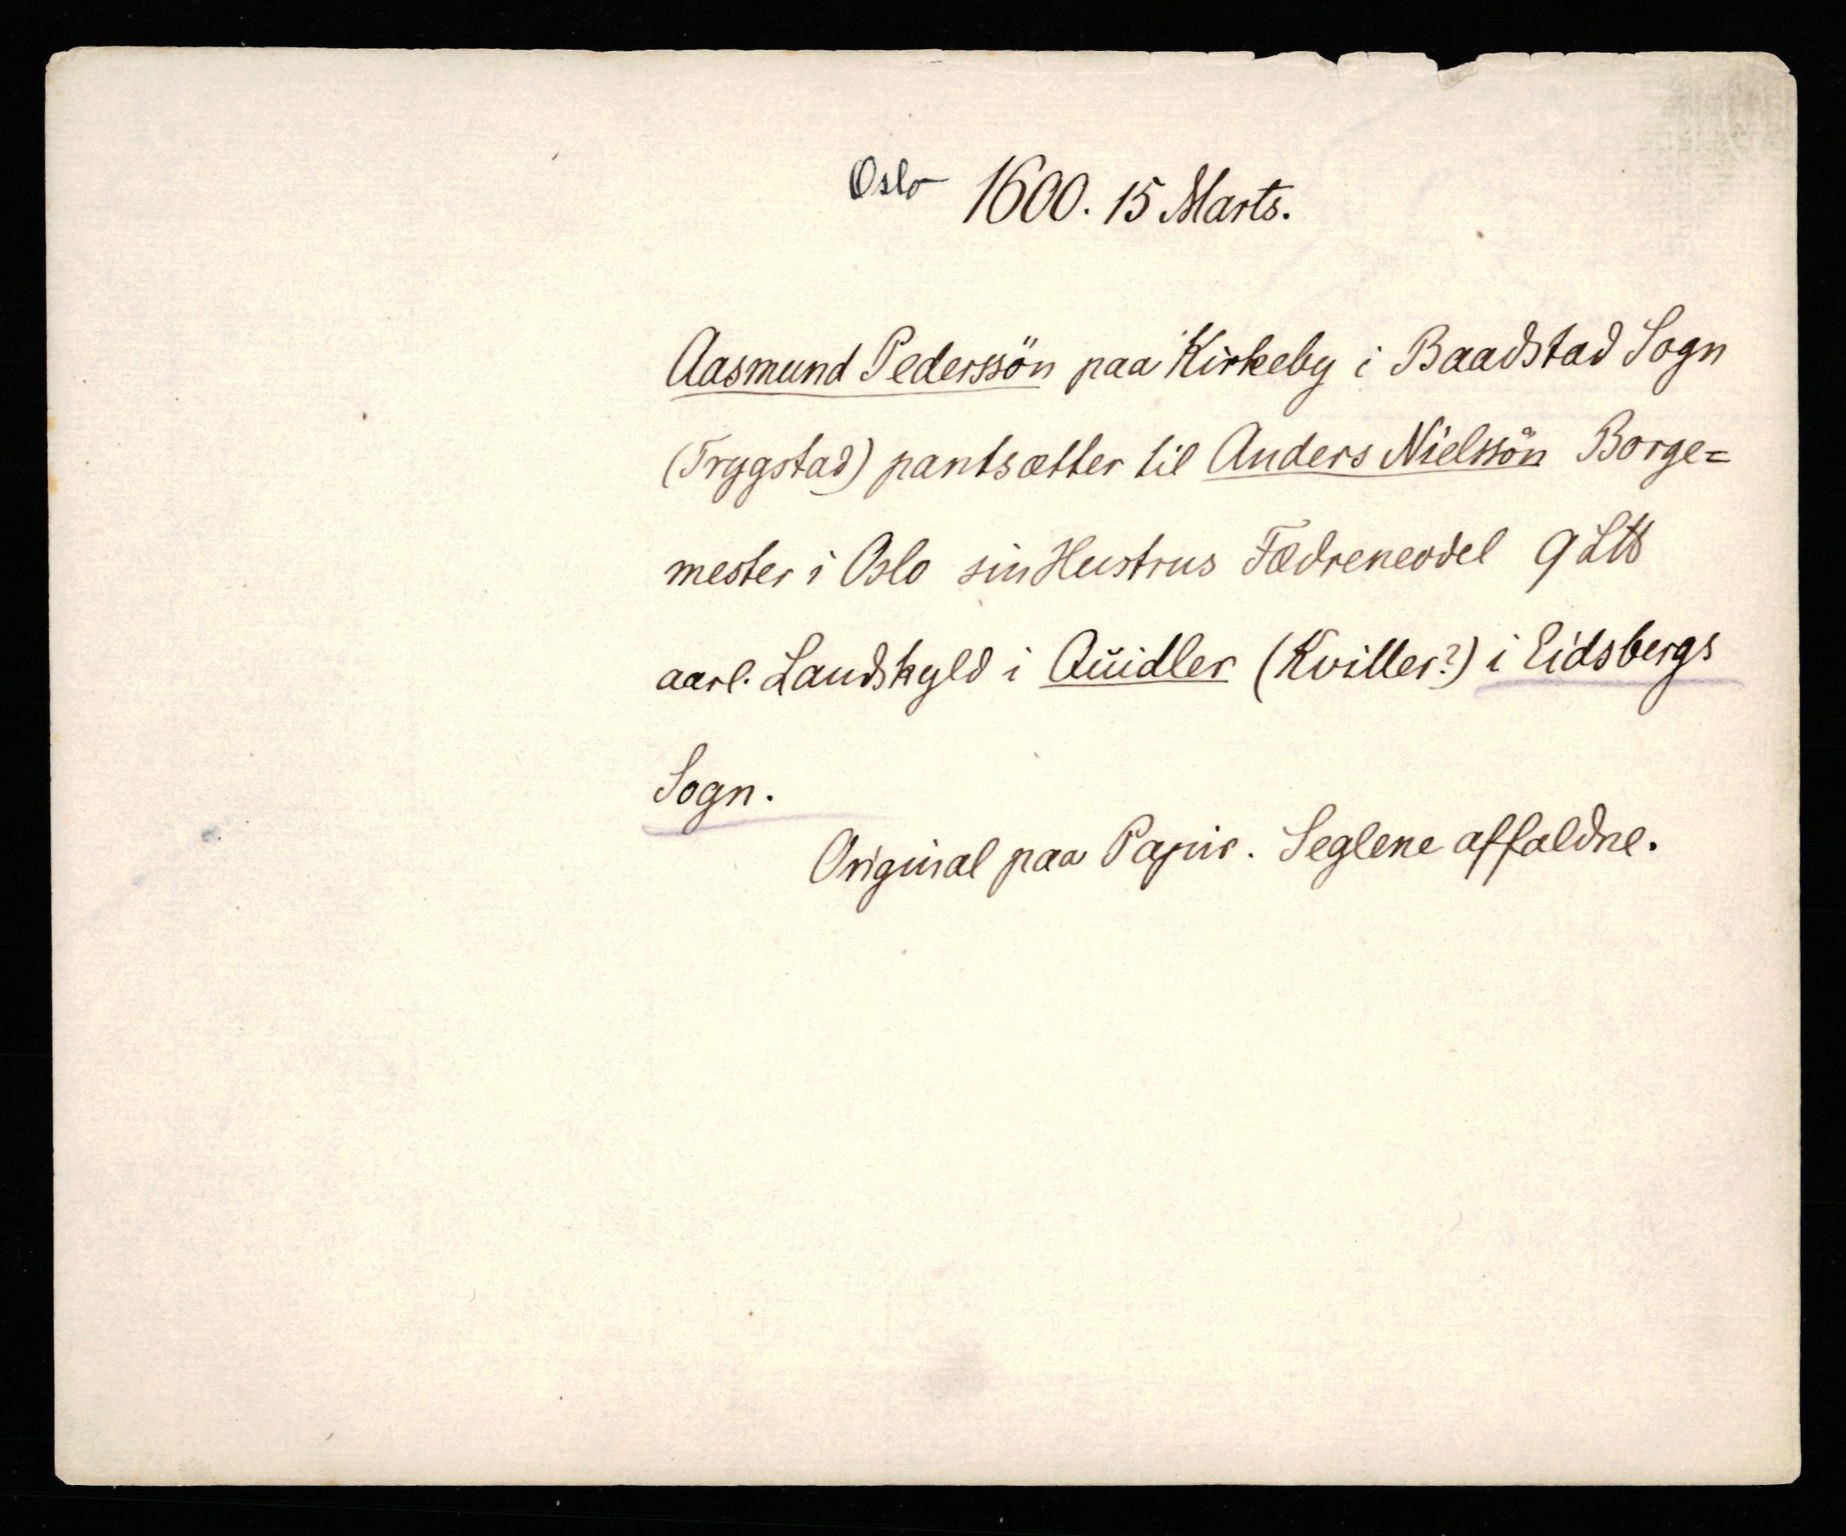 Oslo 1600. 15 Marts.
Aasmund Pederssön paa Kirkeby i Baadstad Sogn
(Trygstad) pantsætter til Anders Nielssön Borge=
mester i Oslo sin Hustrus Fædreneodel 9 L℔
aarl. Landskyld i Qŭidler (Kviller?) i Eidsbergs
Sogn.
Original paa Papir. Seglene affaldne.